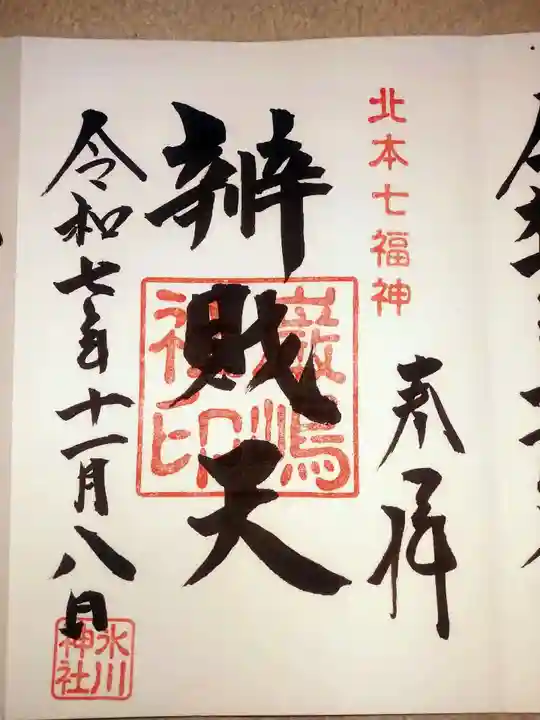 北本七福神
奉拝
辨財天
厳嶋
神印
令和七年十一月八日
氷川
神社